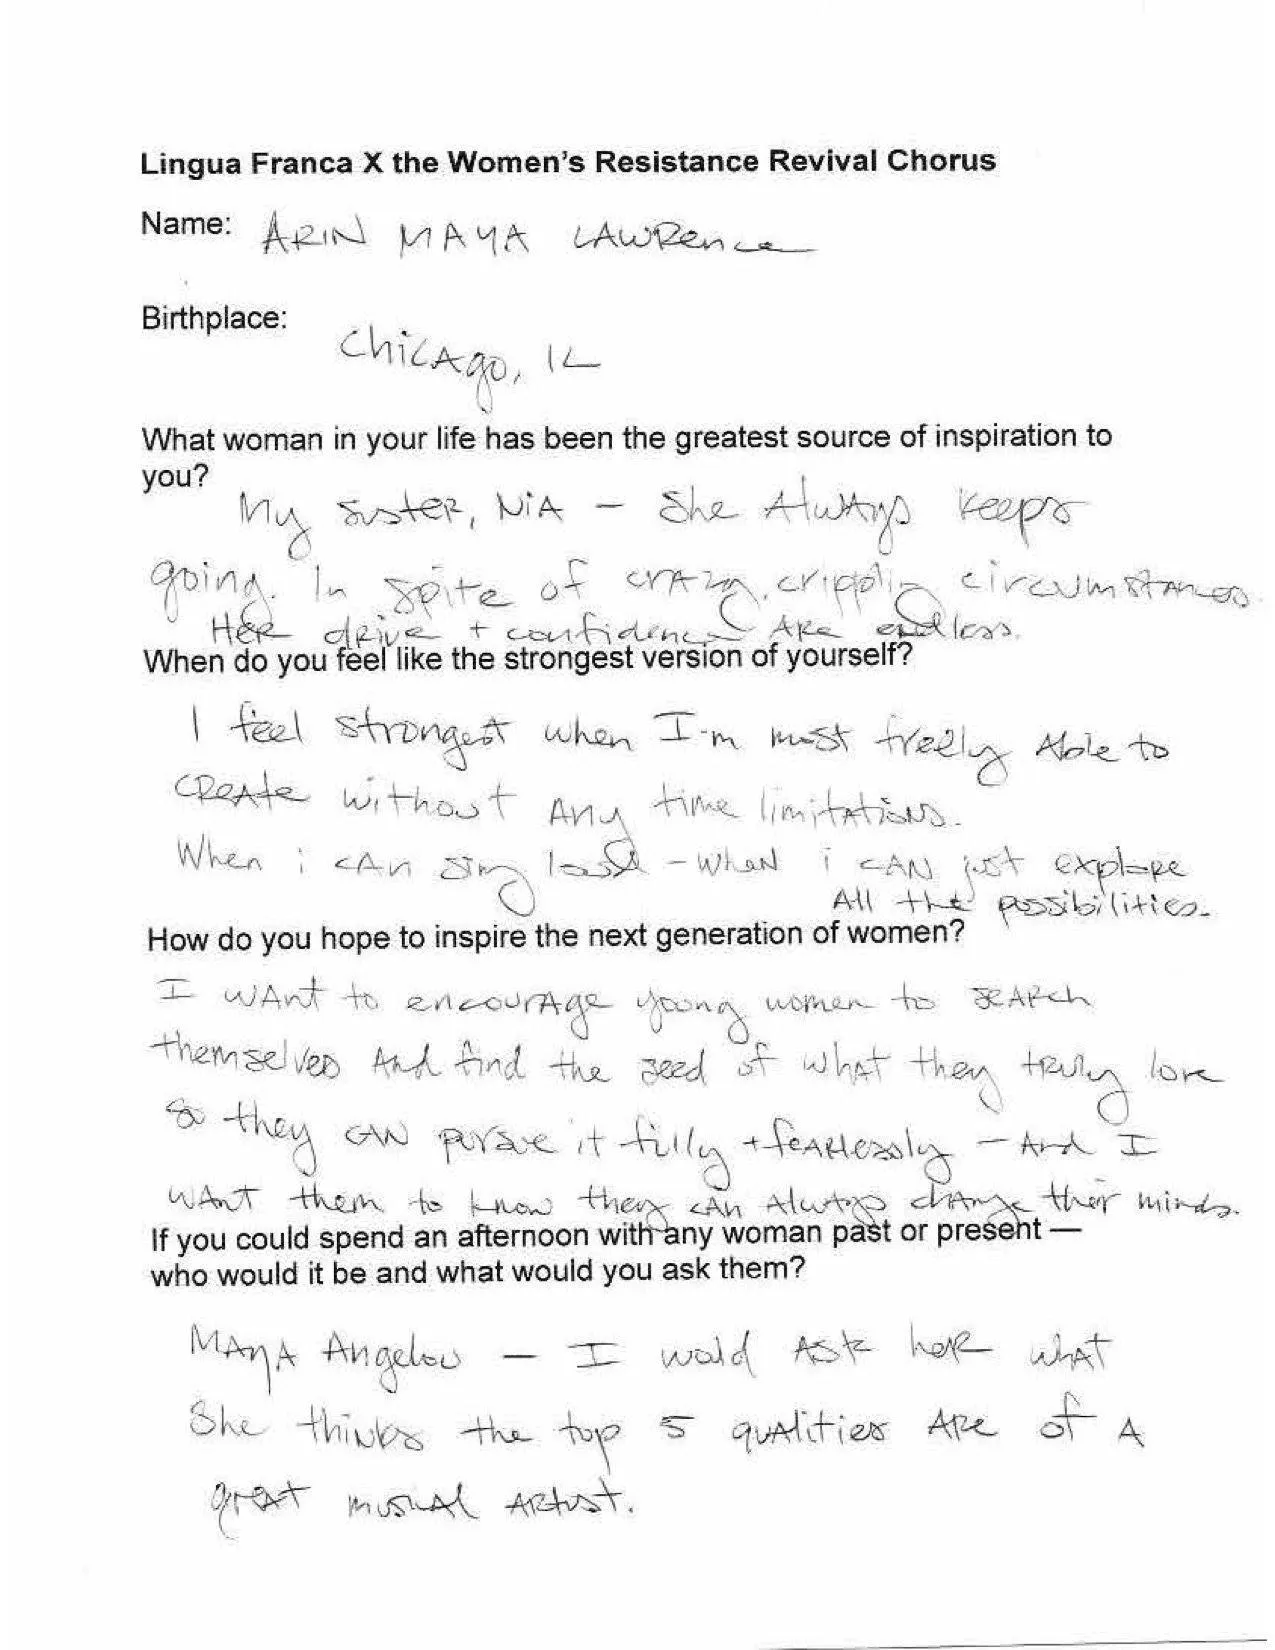 Lingua Franca X the Women's Resistance Revival Chorus
Name: ARIN MAYA LAWRence
Birthplace:
Chicago, IL
What woman in your life has been the greatest source of inspiration to
you?
My sister, NiA – She Always keeps
going. In spite of crazy, crippling circumstances.
Her drive + confidence Are endless.
When do you feel like the strongest version of yourself?
I feel strongest when I'm most freely Able to
create without Any time limitations.
When i cAn sing loud – when i cAN just explore
All the possibilities.
How do you hope to inspire the next generation of women?
I wAnt to encourage young women to search
themselves And find the seed of what they truly love
so they cAN pursue it fully + feArlessly – And I
wAnt them to know they cAn Always change their minds.
If you could spend an afternoon with any woman past or present —
who would it be and what would you ask them?
MAyA Angelou – I would Ask her what
She thinks the top 5 quAlities Are of A
great musical Artist.